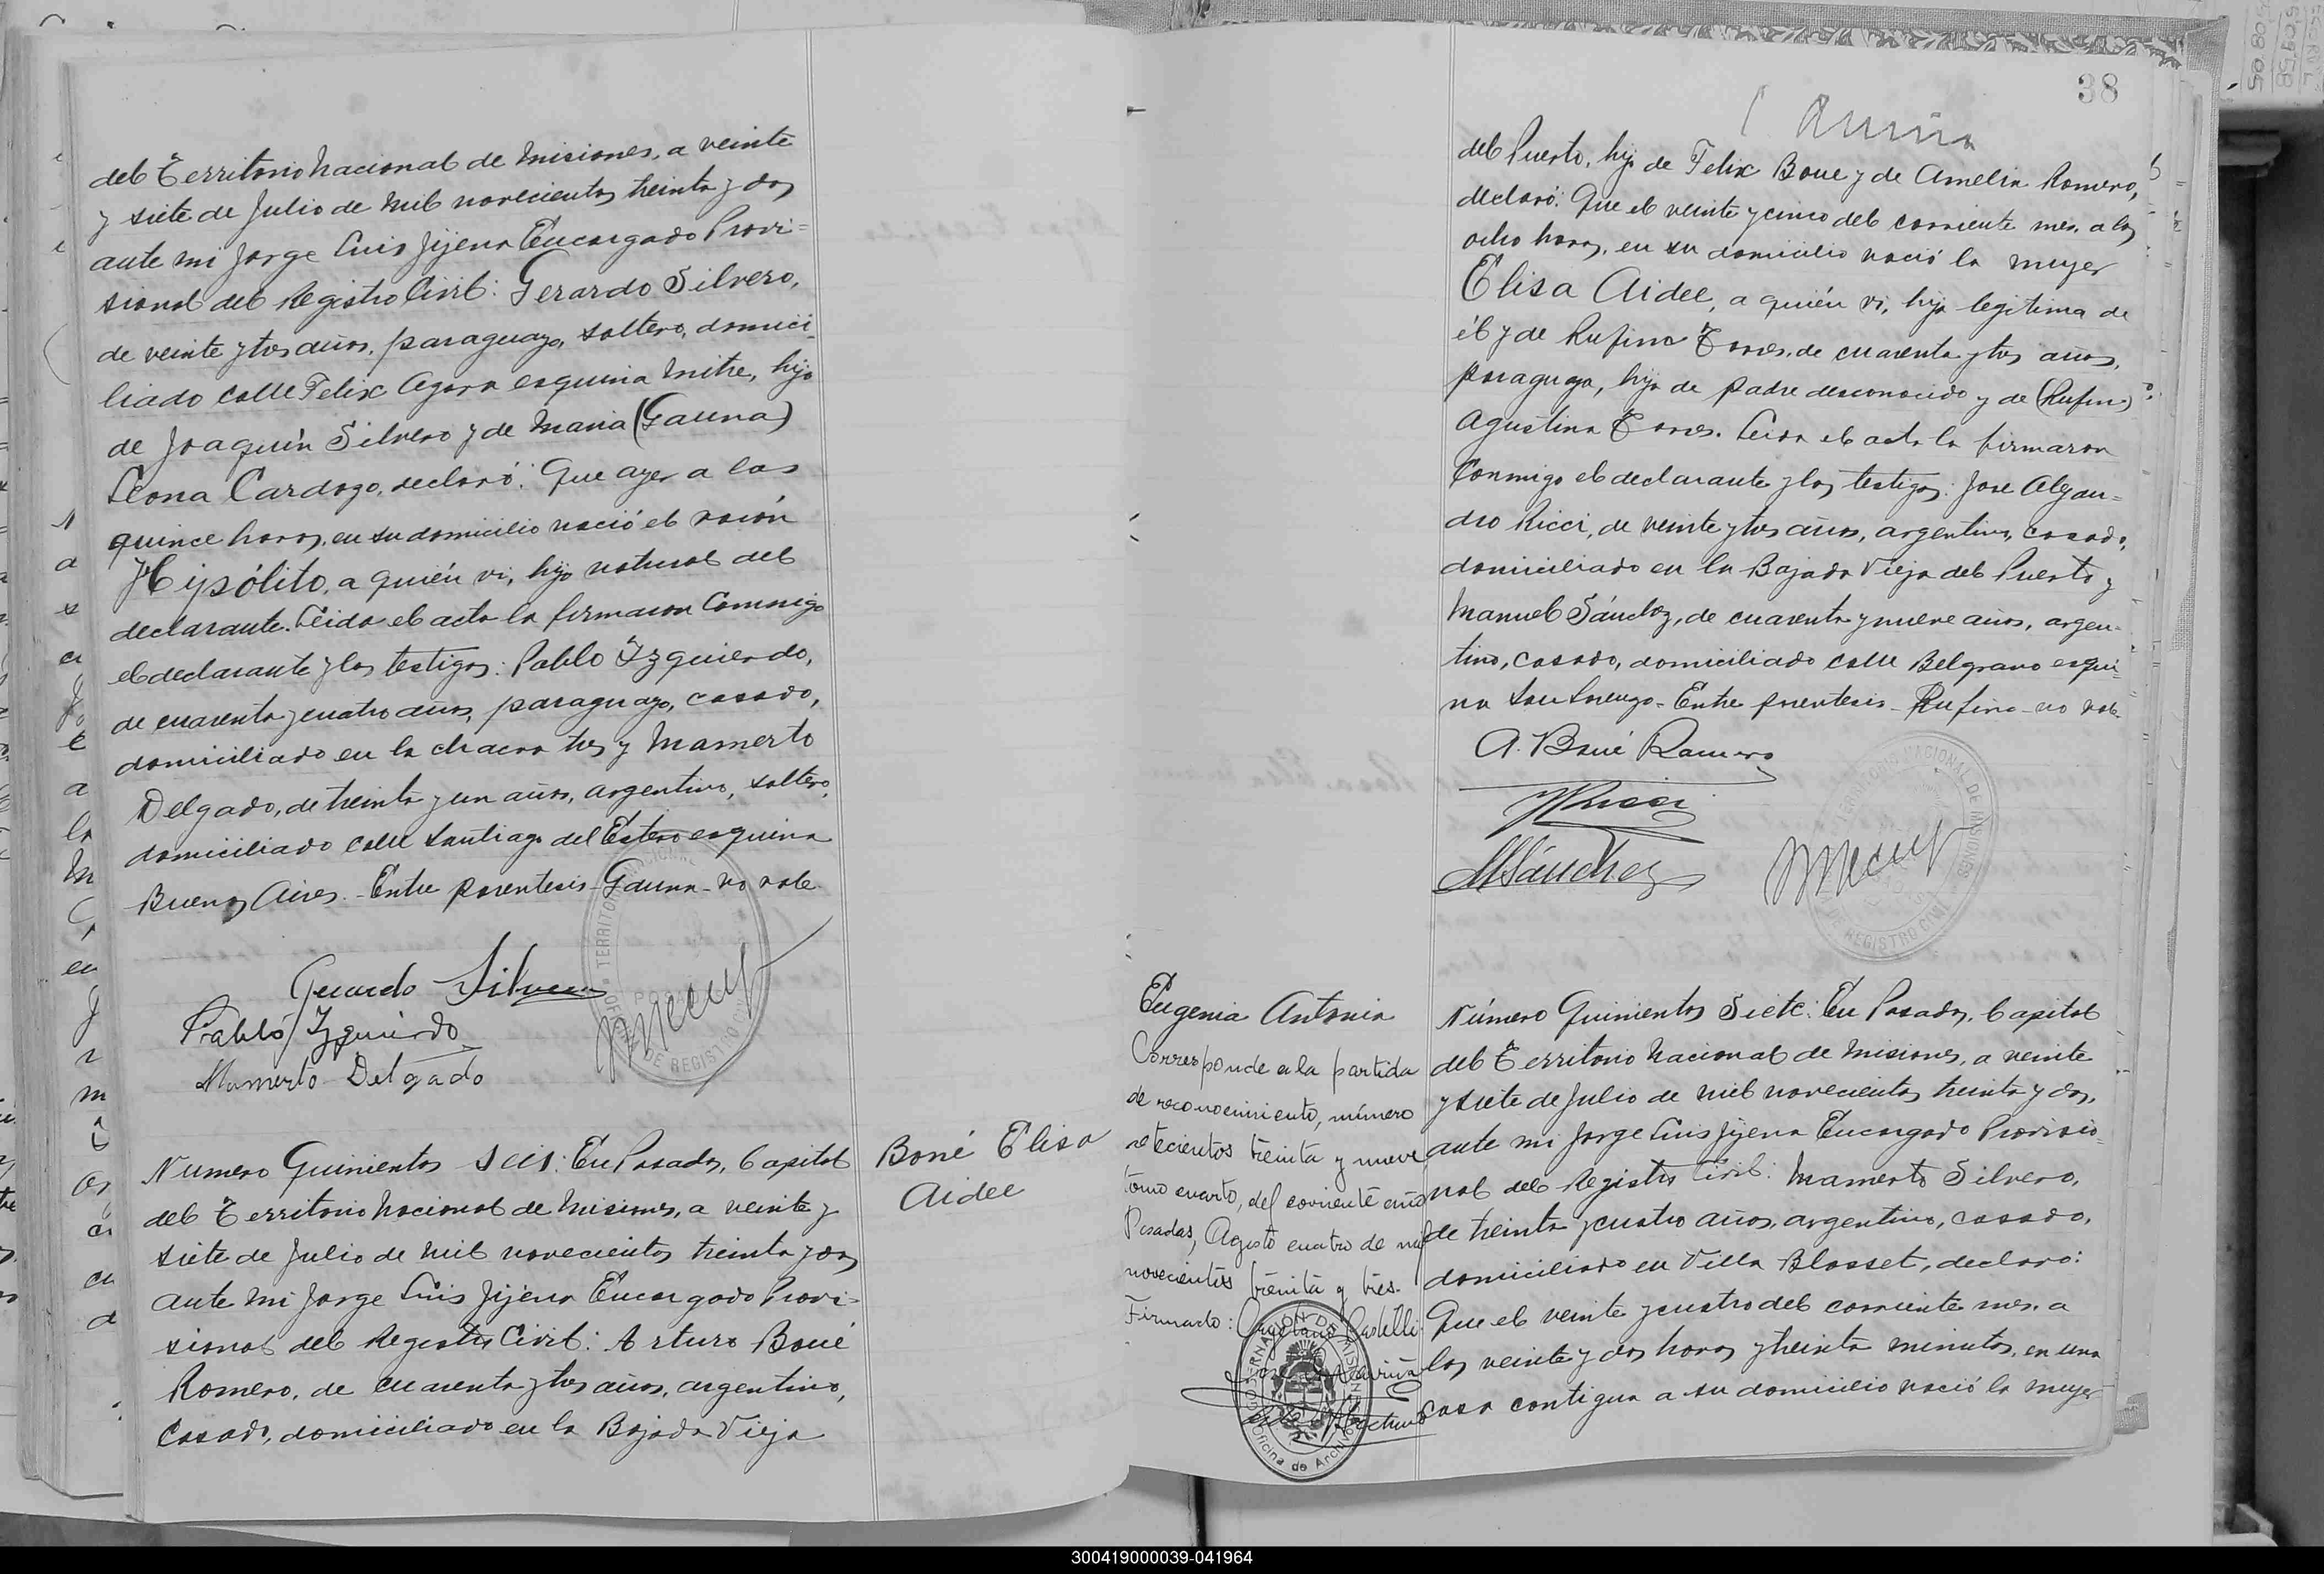 del Territorio Nacional de Misiones, a veinte
y siete de Julio de Mil novecientos treinta y dos
ante mi Jorge Luis Jijena Encargado Provi=
sional del Registro Civil: Gerardo Silvero,
de veinte y tres años, paraguayo, soltero, domici-
liado calle Felix Agara esquina Mitre, hijo
de Joaquín Silvero y de Maria (Gauna)
Leona Cardozo, declaró: Que ayer a las
quince horas, en su domicilio nació el varón
Hipólito, a quién vi, hijo natural del
declarante. Leida el acta la firmaron Conmigo
el declarante y los testigos: Pablo Izquierdo,
de cuarenta y cuatro años, paraguayo, casado,
domiciliado en la chacra tres y Mamerto
Delgado, de treinta y un años, argentino, soltero,
domiciliado calle Santiago del Estero esquina
Buenos Aires.- Entre parentesis- Gauna- no vale
Gerardo Silvero
Pablo Izquierdo
Mamerto Delgado
Boné Elisa
Aidee
Numero Quinientos Seis: En Posadas, Capital
del Territorio Nacional de Misiones, a veinte y
siete de Julio de Mil novecientos treinta y dos
ante mi Jorge Luis Jijena Encargado Provi=
sional del Registro Civil: Arturo Boué
Romero, de cuarenta y tres años, argentino,
casado, domiciliado en la Bajada Vieja
38
del Puerto, hijo de Felix Boue y de Amelia Romero,
declaró: Que el veinte y cinco del corriente mes, a las
ocho horas, en su domicilio nació la mujer
Elisa Aidee, a quién vi, hija legitima de
él y de Rufina Torres, de cuarenta y tres años,
paraguaya, hija de padre desconocido y de (Rufina)
Agustina Torres. Leida el acta la firmaron
Conmigo el declarante y los testigos: Jose Alejan=
dro Ricci, de veinte y tres años, argentino, casado,
domiciliado en la Bajada Vieja del Puerto y
Manuel Sánchez, de cuarenta y nueve años, argen-
tino, casado, domiciliado calle Belgrano esqui-
na San Lorenzo- Entre parentesis- Rufina- no vale-
A. Boué Romero
JRicci
MSánchez
TERRITORIO NACIONAL DE MISIONES
DE REGISTRO CIVIL
Eugenia Antonia
Corresponde a la partida
de reconocimiento, número
setecientos treinta y nueve
tomo cuarto, del corriente año
Posadas, Agosto cuatro de mil
novecientos treinta y tres.
Firmado: Cayetano Castelli
GOBERNACIÓN DE MISIONES
Oficina de Archivo
Número Quinientos Siete: En Posadas, Capital
del Territorio Nacional de Misiones, a veinte
y siete de Julio de mil novecientos treinta y dos,
ante mi Jorge Luis Jijena Encargado Provisio-
nal del Registro Civil: Mamerto Silvero,
de treinta y cuatro años, argentino, casado,
domiciliado en Villa Blosset, declaro:
Que el veinte y cuatro del corriente mes, a
las veinte y dos horas y treinta minutos, en una
casa contigua a su domicilio nació la mujer
300419000039-041964